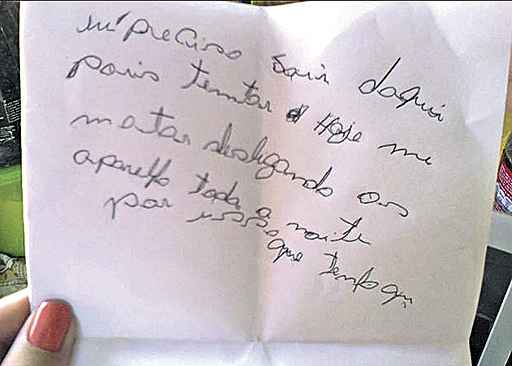 preciso sair daqui
pois tentar Hoje me
matar desligando os
aparelho toda a noite
por isso
que tenho qui